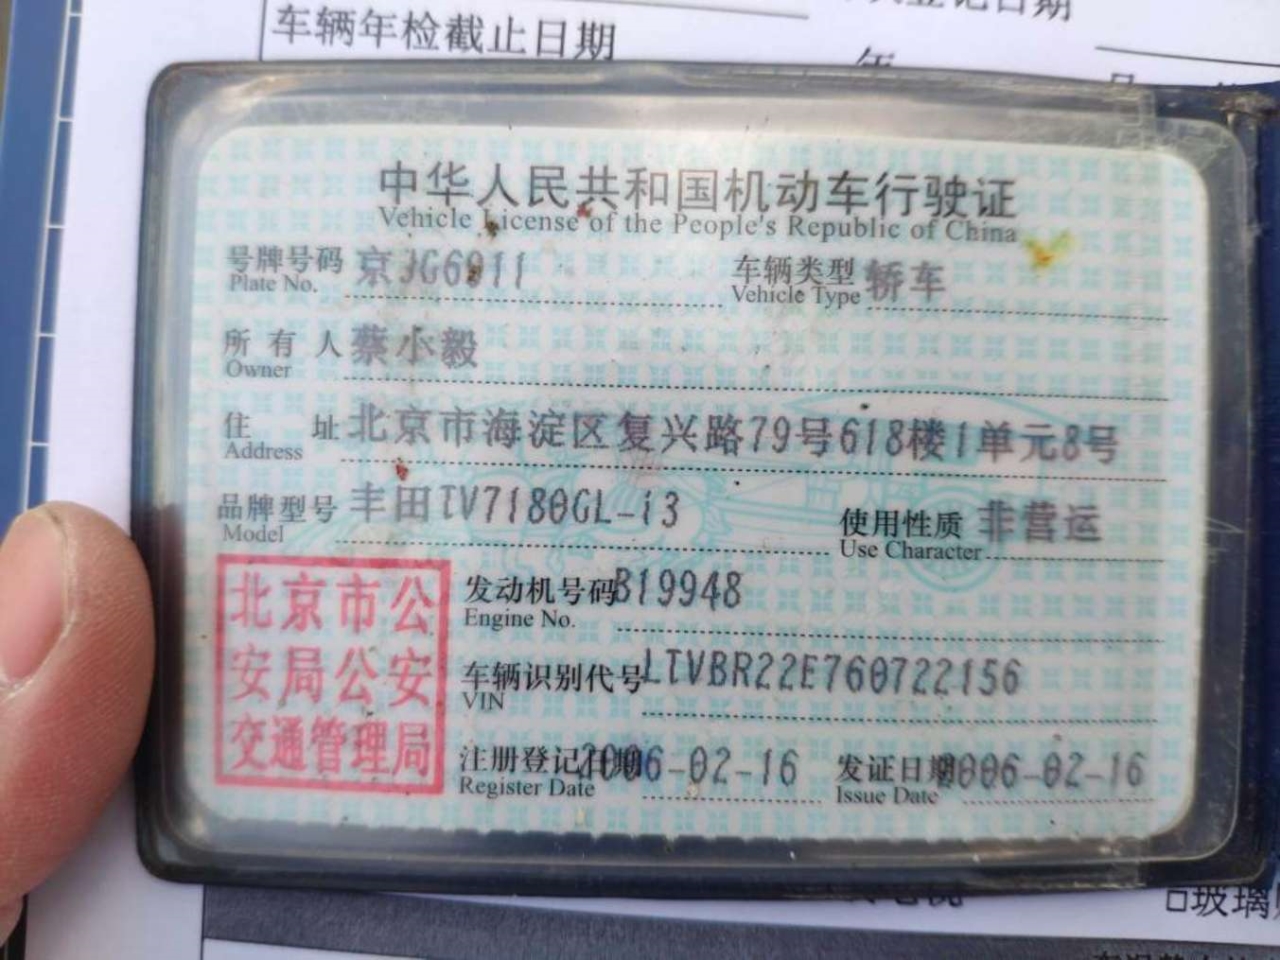 车辆年检截止日期
登记日期
年
中华人民共和国机动车行驶证
Vehicle License of the People's Republic of China
号牌号码 京JG6911 车辆类型 轿车
Plate No. Vehicle Type
所有人 蔡小毅
Owner
住址 北京市海淀区复兴路79号618楼1单元8号
Address
品牌型号 丰田TV7180GL-i3 使用性质 非营运
Model Use Character
北京市公
安局公安
交通管理局
发动机号码 B19948
Engine No.
车辆识别代号 LTVBR22E760722156
VIN
注册登记日期 2006-02-16 发证日期 2006-02-16
Register Date Issue Date
□玻璃